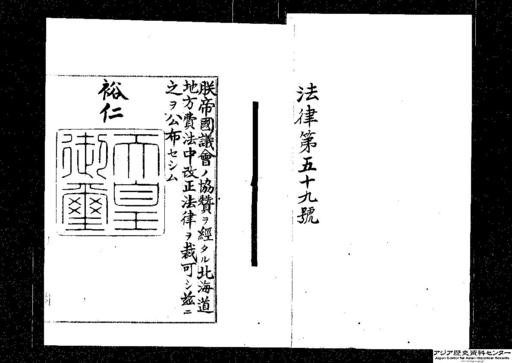 法律第五十九號
朕帝國議會ノ協贊ヲ經タル北海道
地方費法中改正法律ヲ裁可シ茲ニ
之ヲ公布セシム
裕仁
天皇
御璽
アジア歴史資料センター
Japan Center for Asian Historical Records